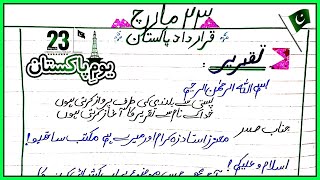 ۲۳ مارچ
قرارداد پاکستان
23
یوم پاکستان
تقریر:
بسم اللہ الرحمٰن الرحیم
پستی سے بلندی کی طرف پرواز کرتی ہوں
خدا کے نام سے تقریر کا آغاز کرتی ہوں
جناب صدر
معزز اساتذہ کرام اور میرے ہم مکتب ساتھیو!
اسلام و علیکم!